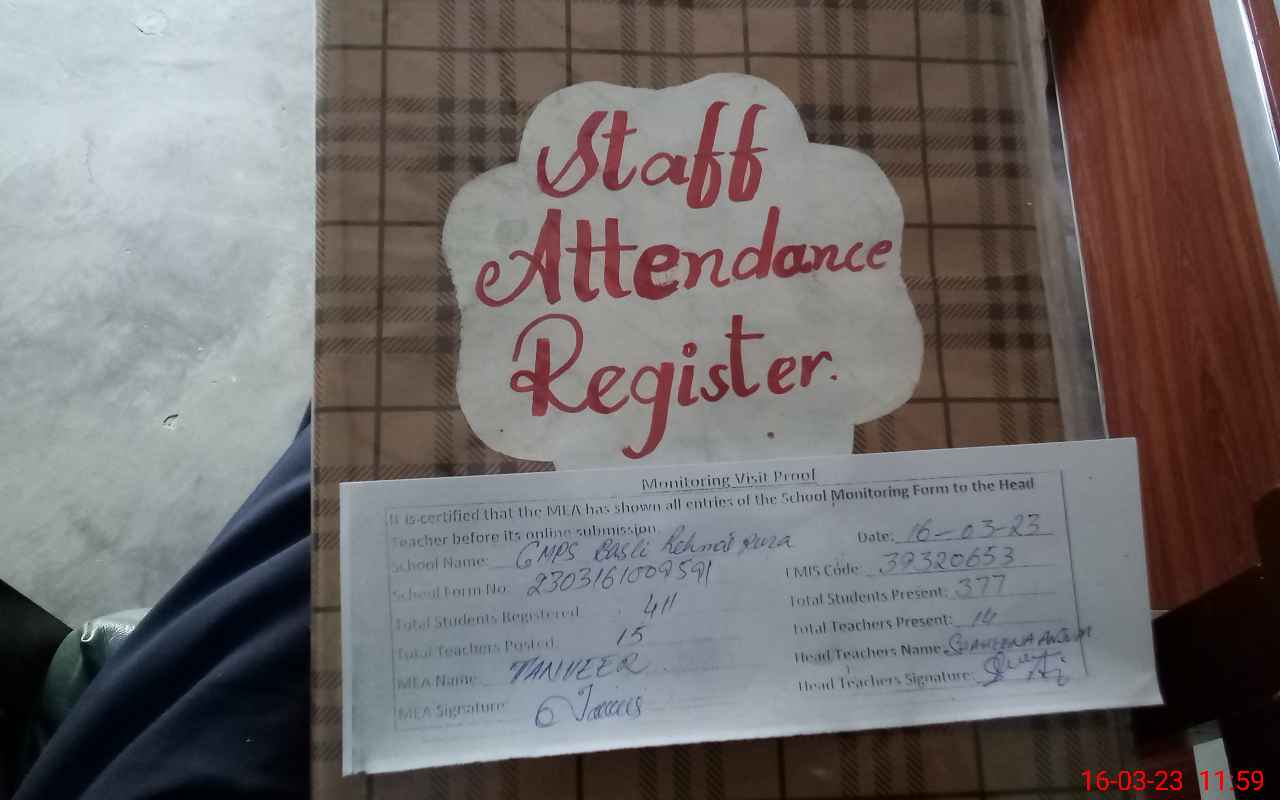 Staff
Attendance
Register.
Monitoring Visit Proof
It is certified that the MEA has shown all entries of the School Monitoring Form to the Head
Teacher before its online submission.
Date: 16-03-23
School Name: GMPS Basti Rehmat
EMIS Code: 39320653
School Form No:
Total Students Present: 377
Total Students Registered: 411
Total Teachers Present: 14
Total Teachers Posted: 15
Head Teachers Name: SHAHEENA
MEA Name: TANVEER
Head Teachers Signature:
MEA Signature:
16-03-23 11:59